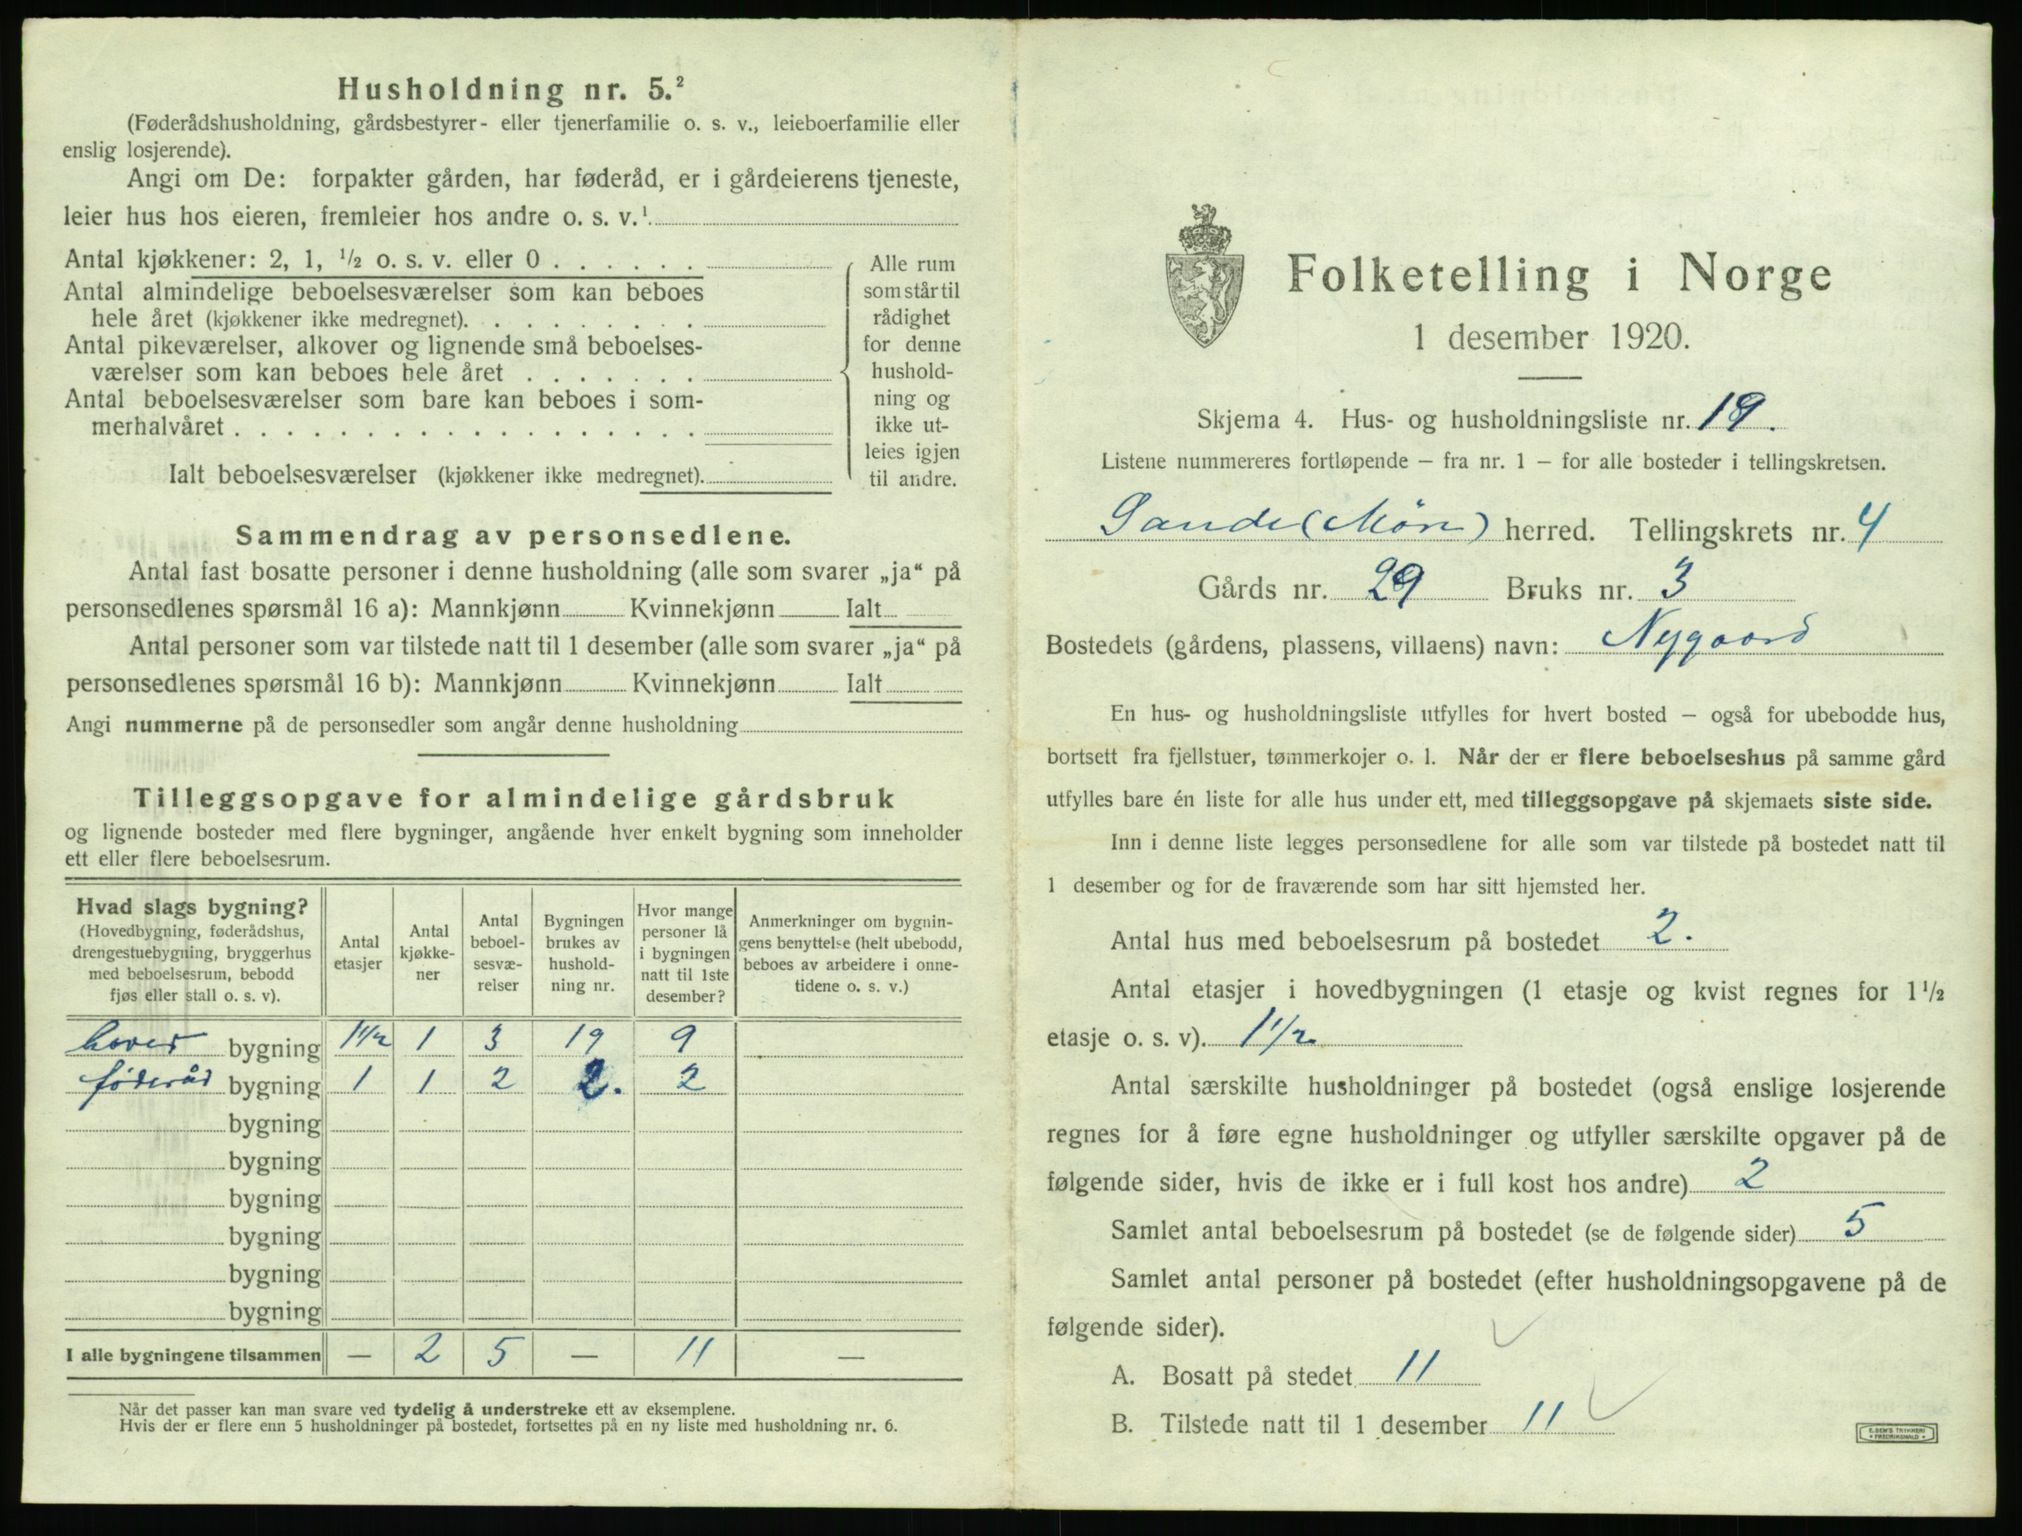 Husholdning nr. 5.²
(Føderådshusholdning, gårdsbestyrer- eller tjenerfamilie o. s. v., leieboerfamilie eller
enslig losjerende).
Angi om De: forpakter gården, har føderåd, er i gårdeierens tjeneste,
leier hus hos eieren, fremleier hos andre o. s. v.¹
Antal kjøkkener: 2, 1, ½ o. s. v. eller 0 . . . . . .
Antal almindelige beboelsesværelser som kan beboes
hele året (kjøkkener ikke medregnet). . . . . . . . .
Antal pikeværelser, alkover og lignende små beboelses-
værelser som kan beboes hele året . . . . . . .
Antal beboelsesværelser som bare kan beboes i som-
merhalvåret . . . . . . . . . . . . . . . . . .
Ialt beboelsesværelser (kjøkkener ikke medregnet).
Alle rum
som står til
rådighet
for denne
hushold-
ning og
ikke ut-
leies igjen
til andre.
Sammendrag av personsedlene.
Antal fast bosatte personer i denne husholdning (alle som svarer „ja“ på
personsedlenes spørsmål 16 a): Mannkjønn Kvinnekjønn Ialt
Antal personer som var tilstede natt til 1 desember (alle som svarer „ja“ på
personsedlenes spørsmål 16 b): Mannkjønn Kvinnekjønn Ialt
Angi nummerne på de personsedler som angår denne husholdning
Tilleggsopgave for almindelige gårdsbruk
og lignende bosteder med flere bygninger, angående hver enkelt bygning som inneholder
ett eller flere beboelsesrum.
Hvad slags bygning?
(Hovedbygning, føderådshus,
drengestuebygning, bryggerhus
med beboelsesrum, bebodd
fjøs eller stall o. s. v).
Antal
etasjer
Antal
kjøkke-
ner
Antal
beboel-
sesvæ-
relser
Bygningen
brukes av
hushold-
ning nr.
Hvor mange
personer lå
i bygningen
natt til 1ste
desember?
Anmerkninger om bygnin-
gens benyttelse (helt ubebodd,
beboes av arbeidere i onne-
tidene o. s. v.)
hoved bygning 1½ 1 3 19 9
føderåd bygning 1 1 2 2. 2
bygning
bygning
bygning
bygning
bygning
bygning
I alle bygningene tilsammen — 2 5 — 11 —
Når det passer kan man svare ved tydelig å understreke ett av eksemplene.
Hvis der er flere enn 5 husholdninger på bostedet, fortsettes på en ny liste med husholdning nr. 6.
Folketelling i Norge
1 desember 1920.
Skjema 4. Hus- og husholdningsliste nr. 19.
Listene nummereres fortløpende – fra nr. 1 – for alle bosteder i tellingskretsen.
Sande (Møre) herred. Tellingskrets nr. 4
Gårds nr. 29 Bruks nr. 3
Bostedets (gårdens, plassens, villaens) navn: Nygaard
En hus- og husholdningsliste utfylles for hvert bosted – også for ubebodde hus,
bortsett fra fjellstuer, tømmerkojer o. l. Når der er flere beboelseshus på samme gård
utfylles bare én liste for alle hus under ett, med tilleggsopgave på skjemaets siste side.
Inn i denne liste legges personsedlene for alle som var tilstede på bostedet natt til
1 desember og for de fraværende som har sitt hjemsted her.
Antal hus med beboelsesrum på bostedet 2.
Antal etasjer i hovedbygningen (1 etasje og kvist regnes for 1½
etasje o. s. v). 1½
Antal særskilte husholdninger på bostedet (også enslige losjerende
regnes for å føre egne husholdninger og utfyller særskilte opgaver på de
følgende sider, hvis de ikke er i full kost hos andre) 2
Samlet antal beboelsesrum på bostedet (se de følgende sider) 5
Samlet antal personer på bostedet (efter husholdningsopgavene på de
følgende sider).
A. Bosatt på stedet 11
B. Tilstede natt til 1 desember 11